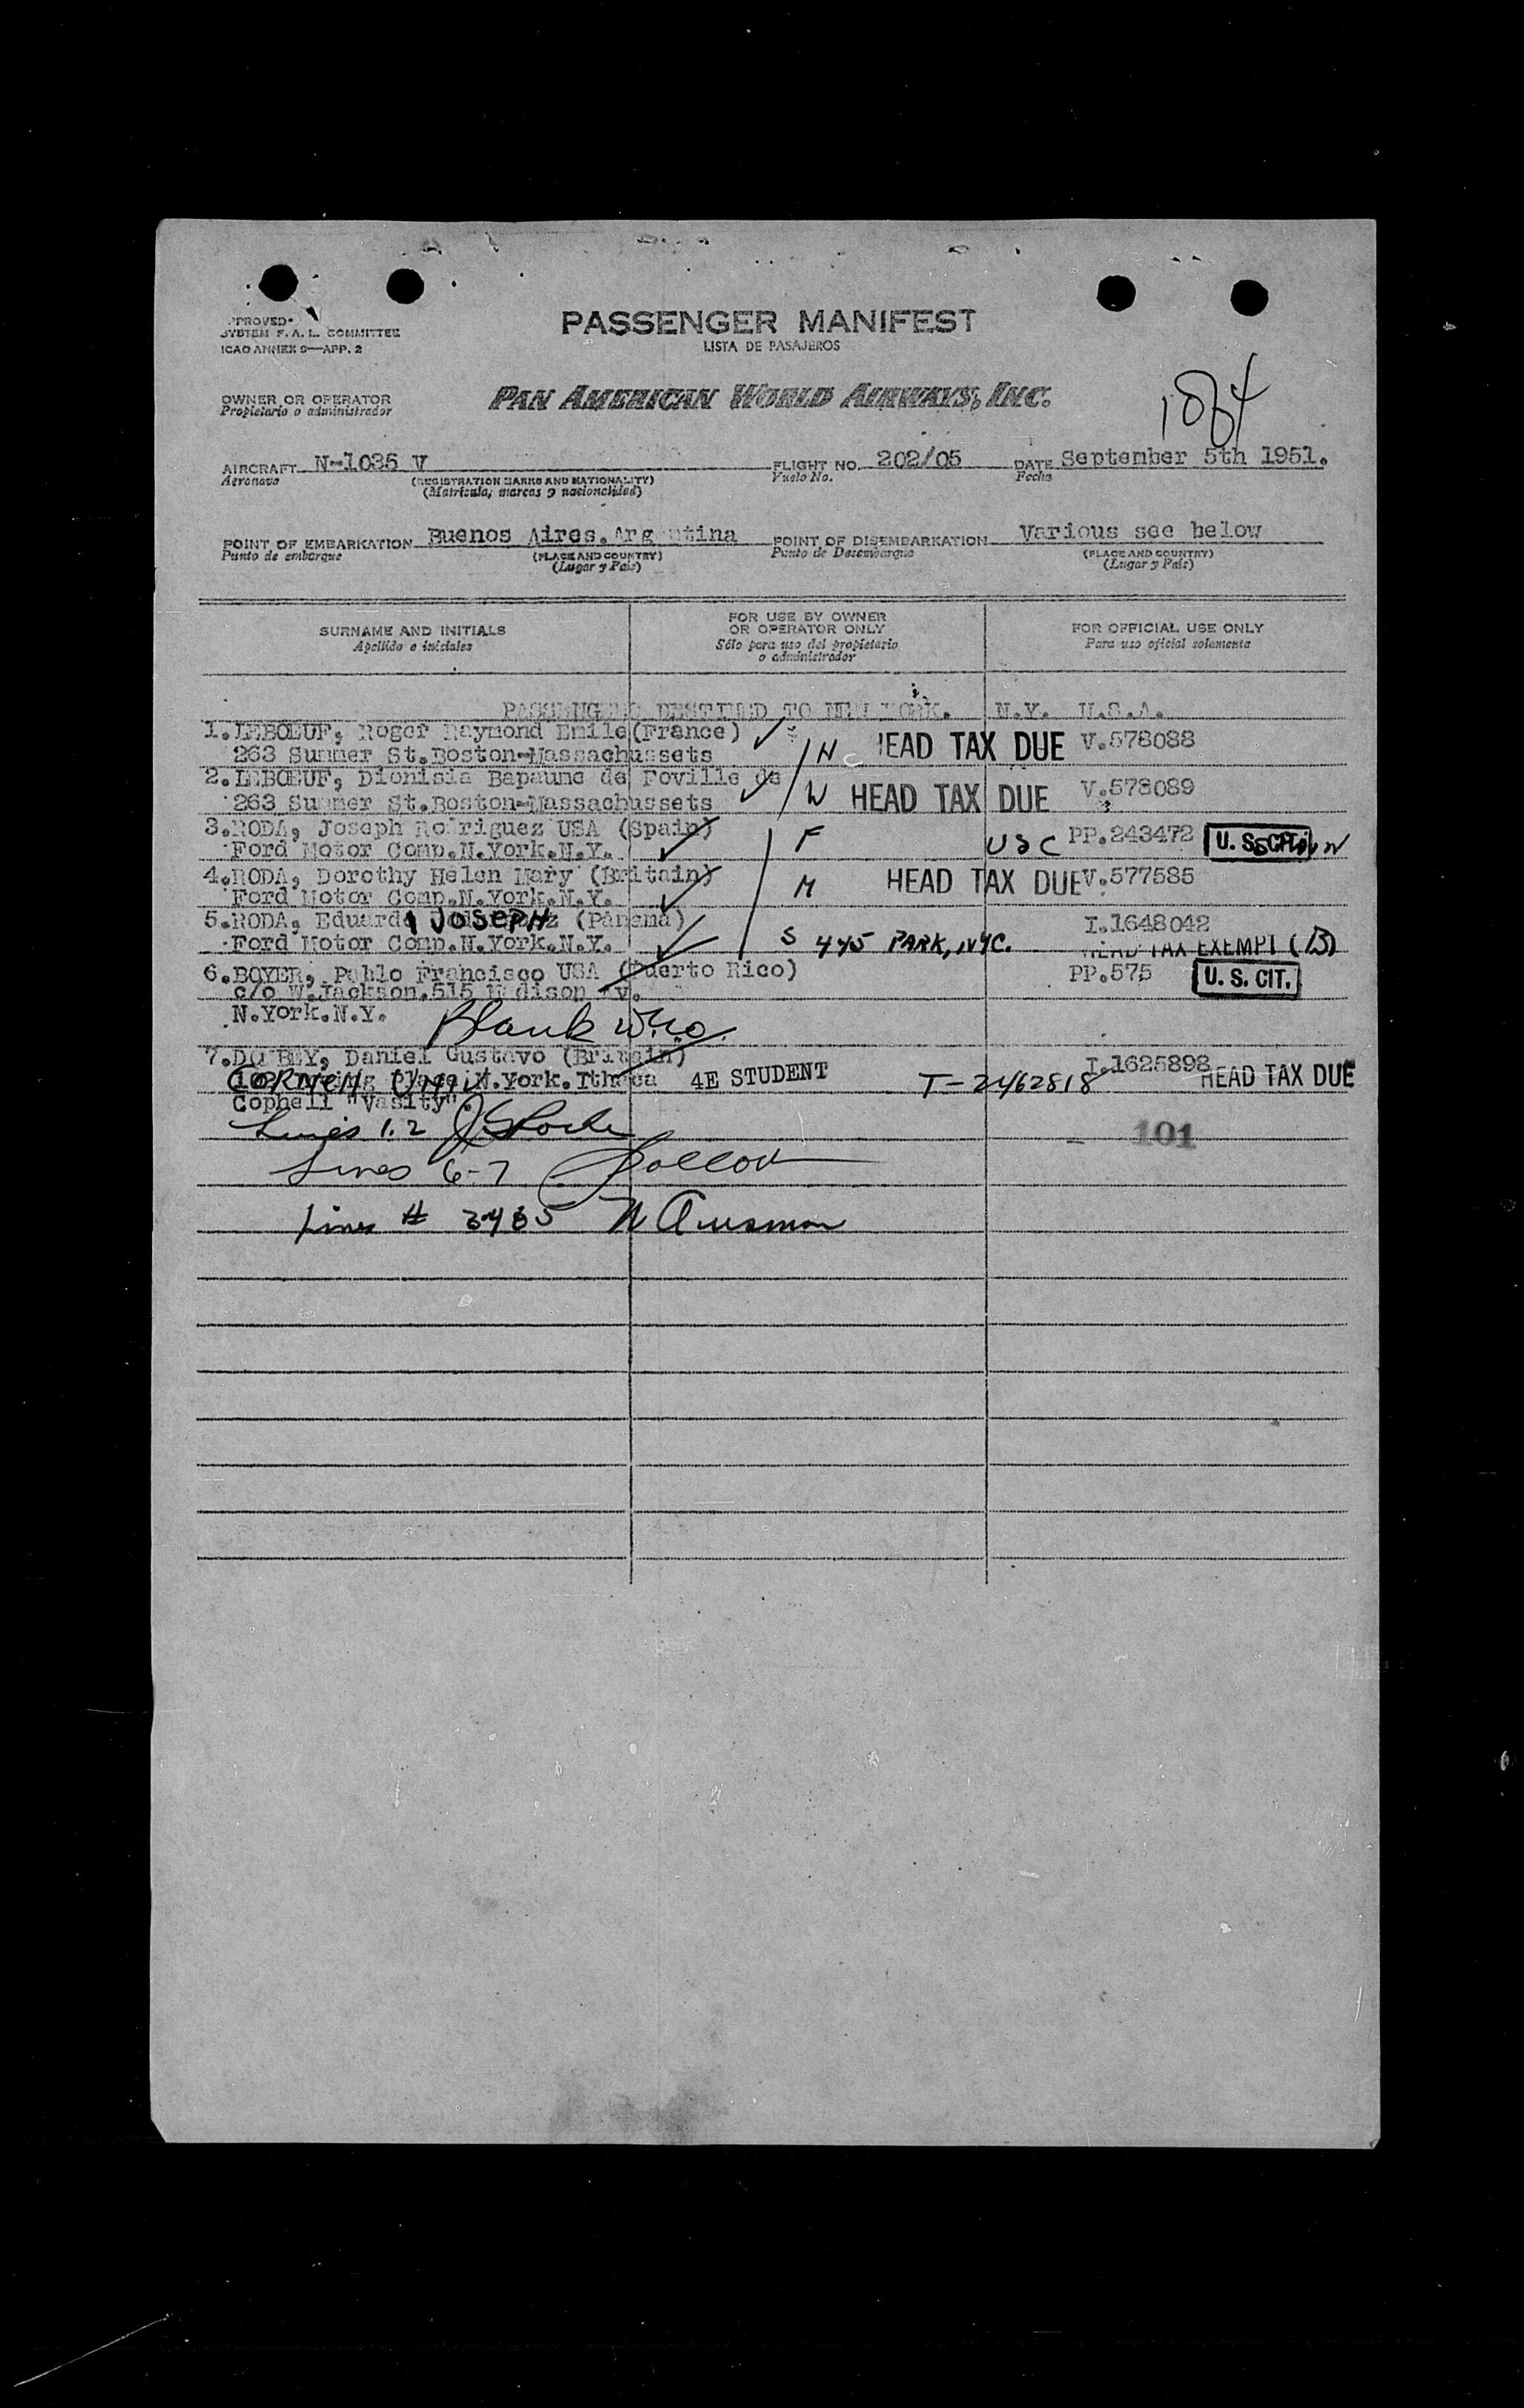 PASSENGER MANIFEST
LISTA DE PASAJEROS
SYSTEM F. A. L. COMMITTEE
ICAO ANNEX 9—APP. 2
OWNER OR OPERATOR
Propietario o administrador
PAN AMERICAN WORLD AIRWAYS, INC.
AIRCRAFT N-1035 V
Aeronave
(REGISTRATION MARKS AND NATIONALITY)
(Matrícula, marcas y nacionalidad)
FLIGHT NO. 202/05
Vuelo No.
DATE September 5th 1951.
Fecha
POINT OF EMBARKATION Buenos Aires. Argentina
Punto de embarque
(PLACE AND COUNTRY)
(Lugar y País)
POINT OF DISEMBARKATION Various see below
Punto de Desembarque
(PLACE AND COUNTRY)
(Lugar y País)
SURNAME AND INITIALS
Apellido e iniciales
FOR USE BY OWNER
OR OPERATOR ONLY
Sólo para uso del propietario
o administrador
FOR OFFICIAL USE ONLY
Para uso oficial solamente
PASSENGERS DESTINED TO NEW YORK. N.Y. U.S.A.
1.LEBŒUF, Roger Raymond Emile(France) H HEAD TAX DUE V.578088
263 Summer St.Boston-Massachussets
2.LEBŒUF, Dionisia Bapaume de Foville de
263 Summer St.Boston-Massachussets W HEAD TAX DUE V.578089
3.RODA, Joseph Rodriguez USA (Spain) F USC PP.243472 U. S. CIT.
Ford Motor Comp.N.York.N.Y.
4.RODA, Dorothy Helen Mary (Britain) M HEAD TAX DUE V.577585
Ford Motor Comp.N.York.N.Y.
5.RODA, Eduardo JOSEPH (Panama) I.1648042
Ford Motor Comp.N.York.N.Y. S 445 PARK, NYC. HEAD TAX EXEMPT (B)
6.BOYER, Pablo Francisco USA (Puerto Rico) PP.575 U. S. CIT.
c/o W.Jackson.515 Madison Av.
N.York.N.Y.
Blank
7. Daniel Gustavo (Britain) I.1625898
CORNELL UNIV N.York.Ithaca 4E STUDENT T-2462818 HEAD TAX DUE
Cophell "Vasity".
Lines 1.2
101
Lines 6-7
Lines #